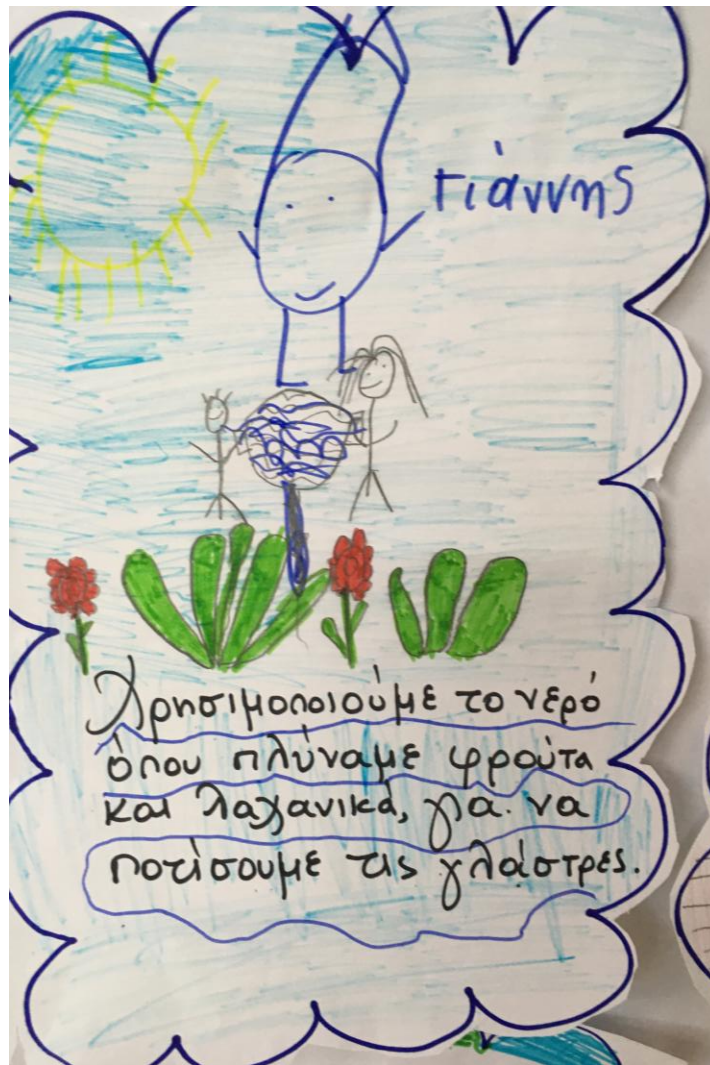 Γιάννης
Χρησιμοποιούμε το νερό
όπου πλύναμε φρούτα
και λαχανικά, για να
ποτίσουμε τις γλάστρες.